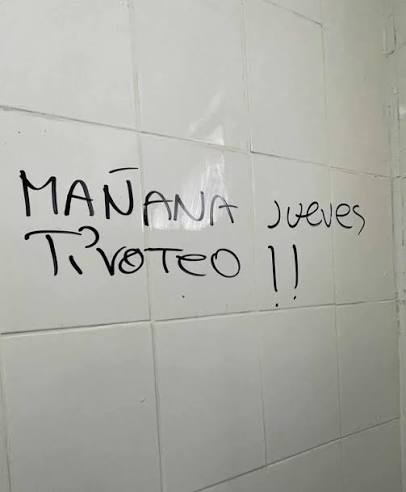 MAÑANA JUEVES
TiVOTEO !!